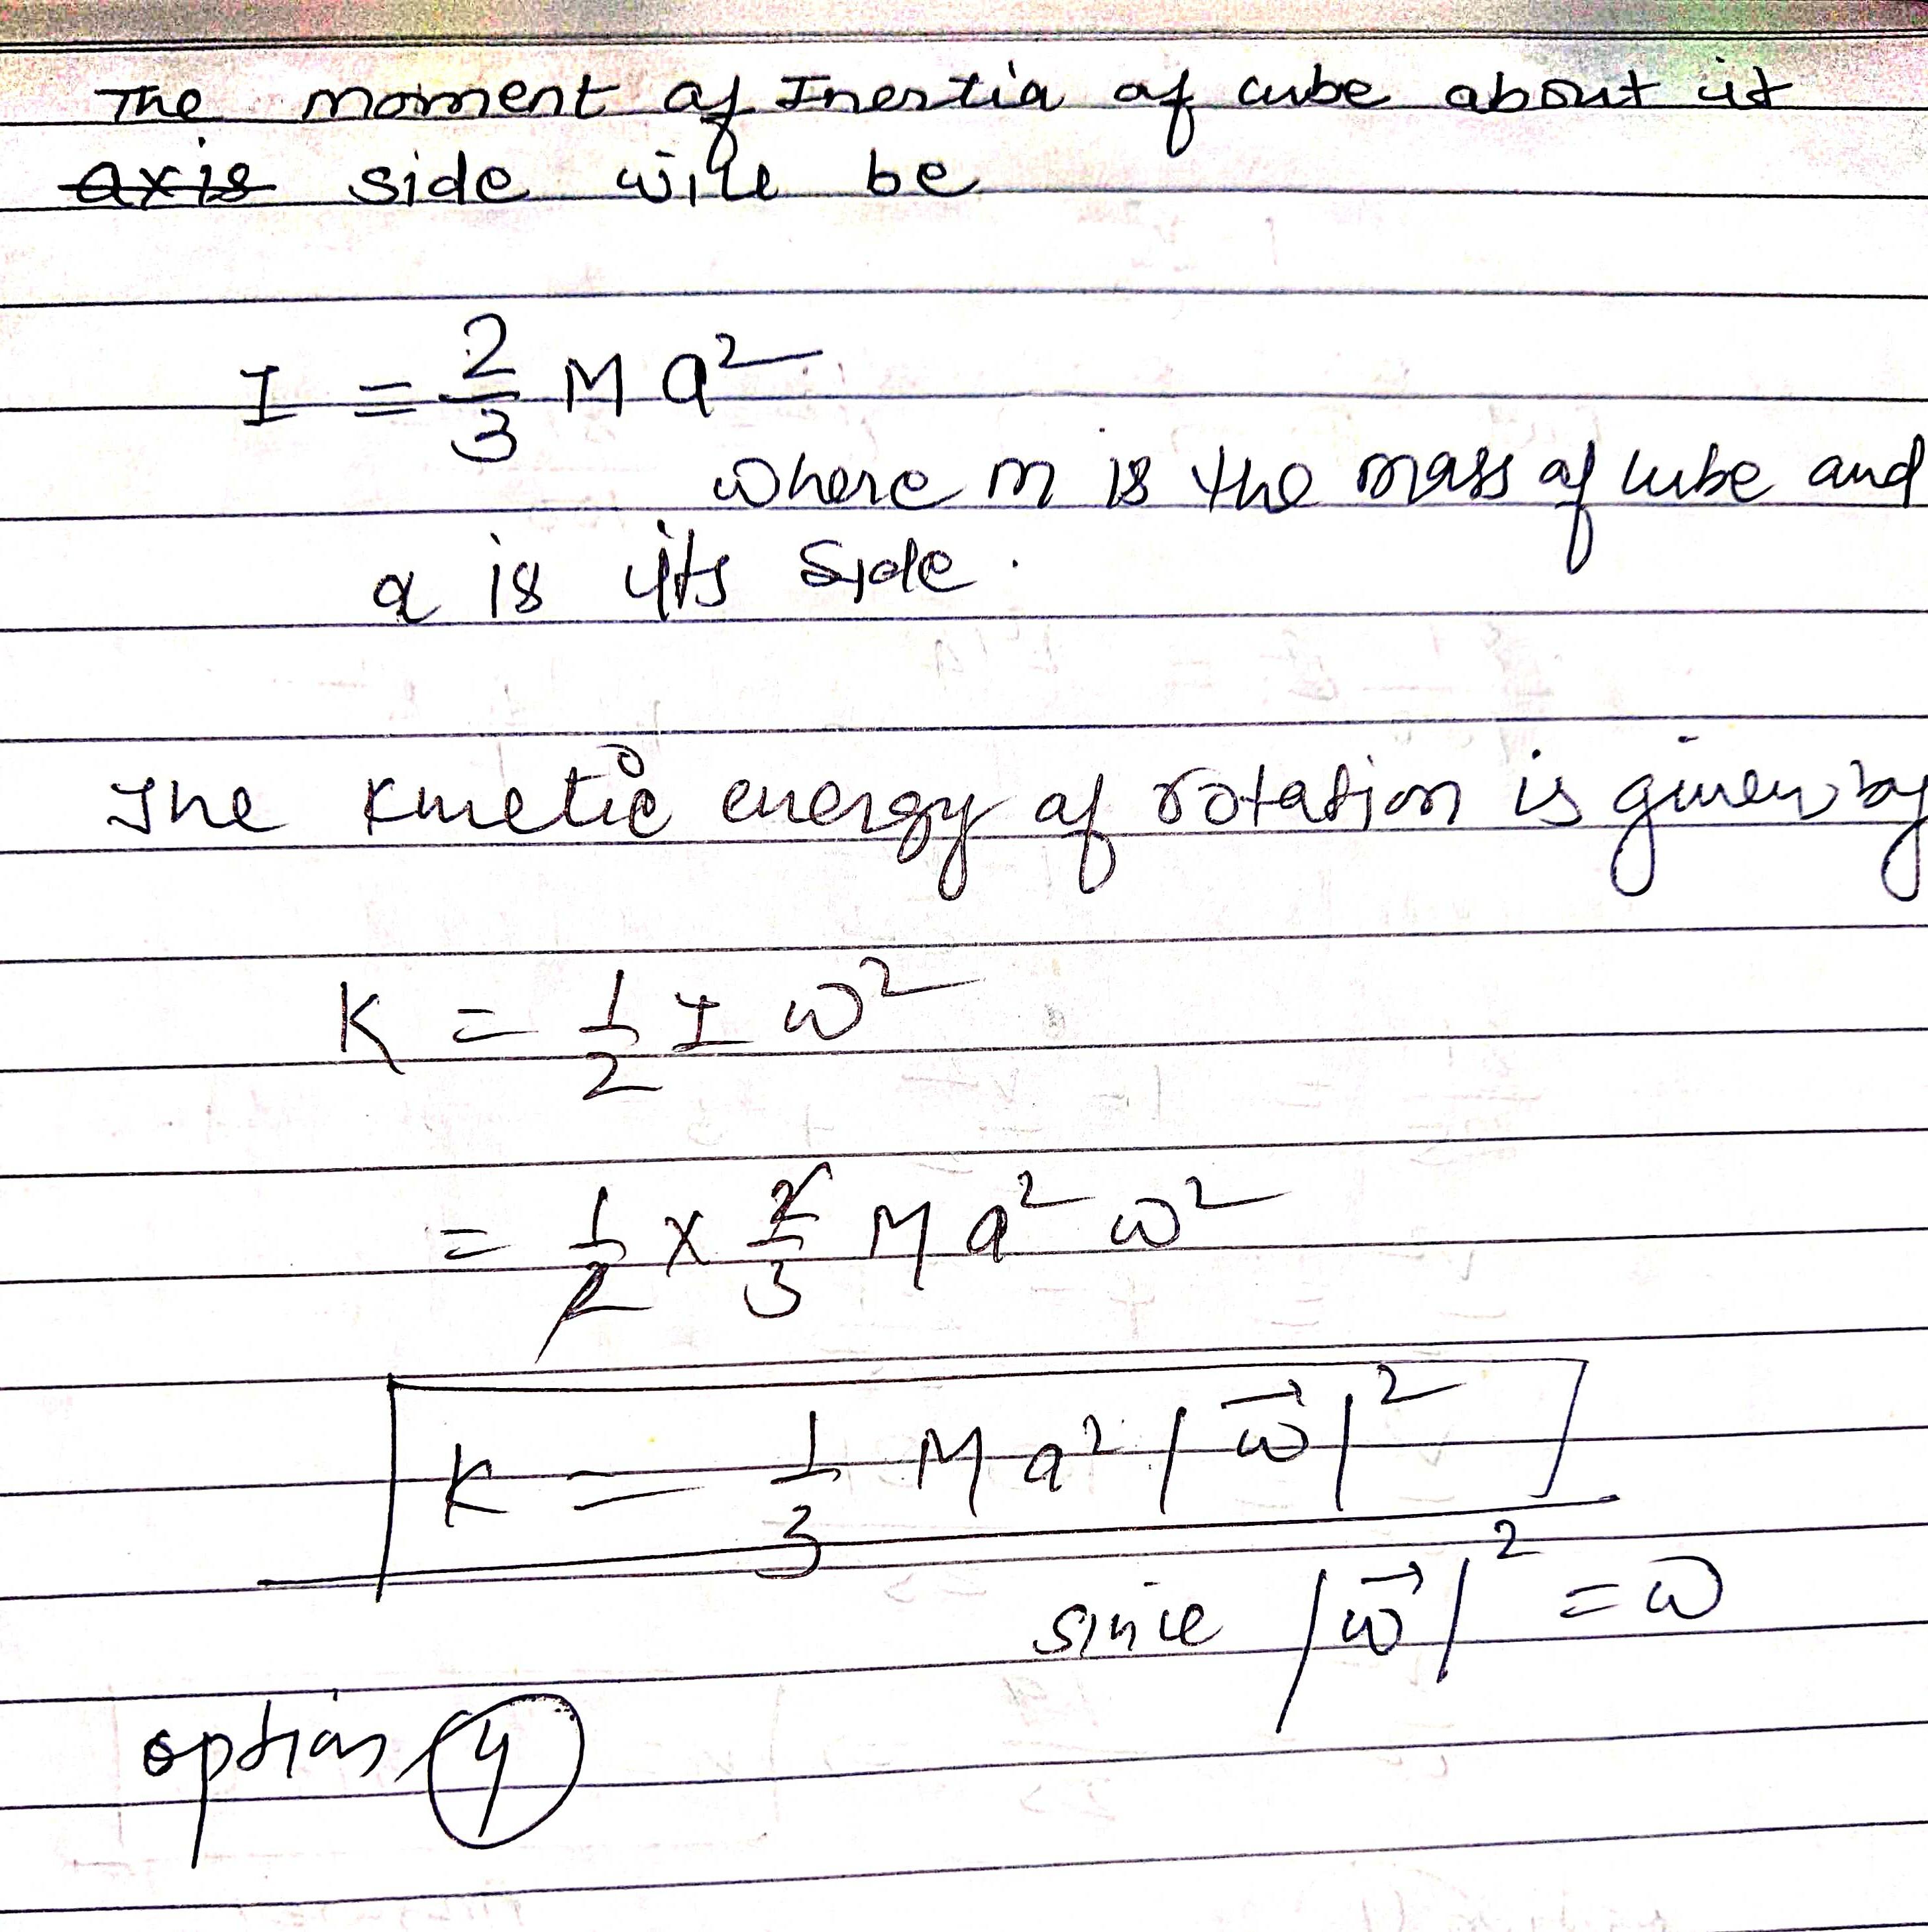 The moment of Inertia of cube about it
axis side will be
I = 2/3 M a²
where m is the mass of cube and
a is its side.
The kinetic energy of rotation is given by
K = 1/2 I ω²
= 1/2 × 2/3 M a² ω²
K = 1/3 M a² |ω⃗|²
since |ω⃗|² = ω
option 4